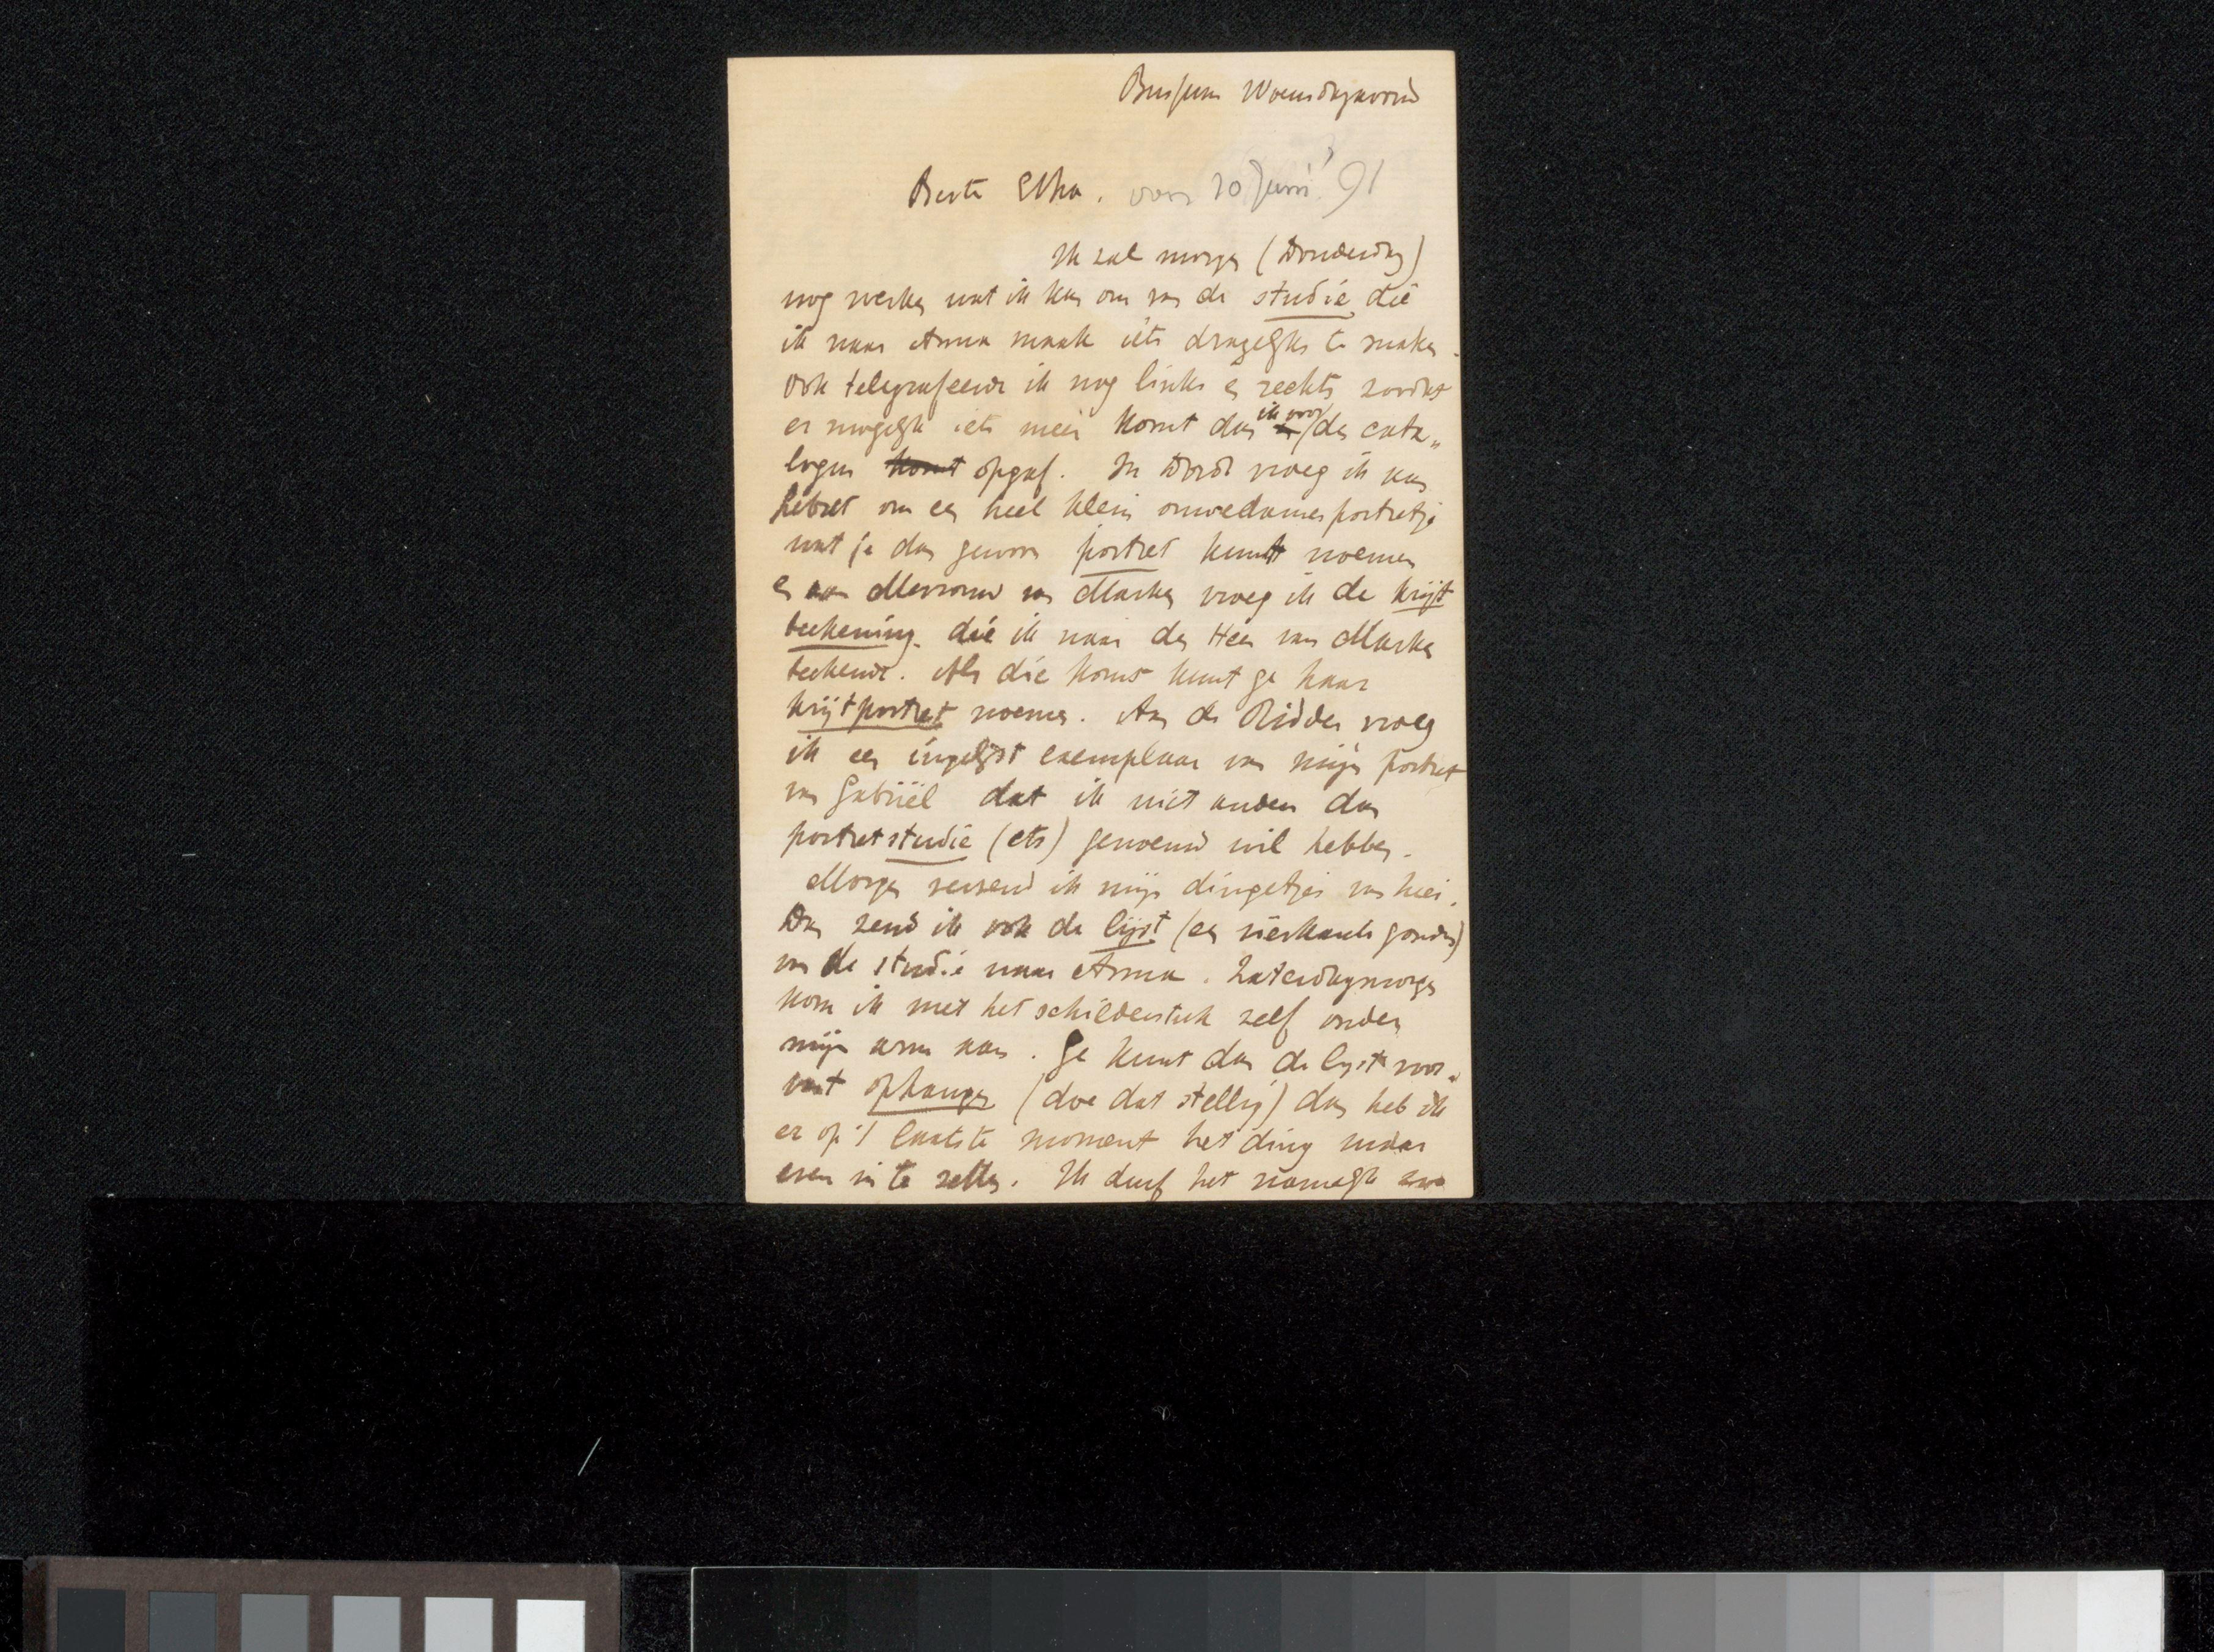 Bussum Woensdagavond
Beste Etha. voor 20 Juni '91
Ik zal morgen (Donderdag)
nog werken wat ik kan om van de studie die
ik naar Anna maak iets dragelijks te maken.
Ook telegrafeerde ik nog links en rechts zoodat
er mogelijk iets meer komt dan ik voor den cata„
logus komt opgaf. In Dordt vroeg ik aan
hetzelf om een heel klein ouwedamesportretje
wat je dan gewoon portret kunt noemen
en aan Mevrouw van Marken vroeg ik de krijt
teekening die ik naar den Heer van Marken
teekende. Als die komt kunt ge haar
krijtportret noemen. Aan de Ridder vroeg
ik een ingelijst exemplaar van mijn portret
van Gabriël dat ik niet anders dan
portretstudie (ets) genoemd wil hebben.
Morgen verzend ik mijn dingetjes van hier.
Dan zend ik ook de lijst (een vierkante gouden)
van de studie naar Anna. Zaterdagmorgen
kom ik met het schilderstuk zelf onder
mijn arm aan. Ge kunt dan de lijst voor„
uit ophangen (doe dat stellig) dan heb ik
er op 't laatste moment het ding maar
even in te zetten. Ik durf het namelijk